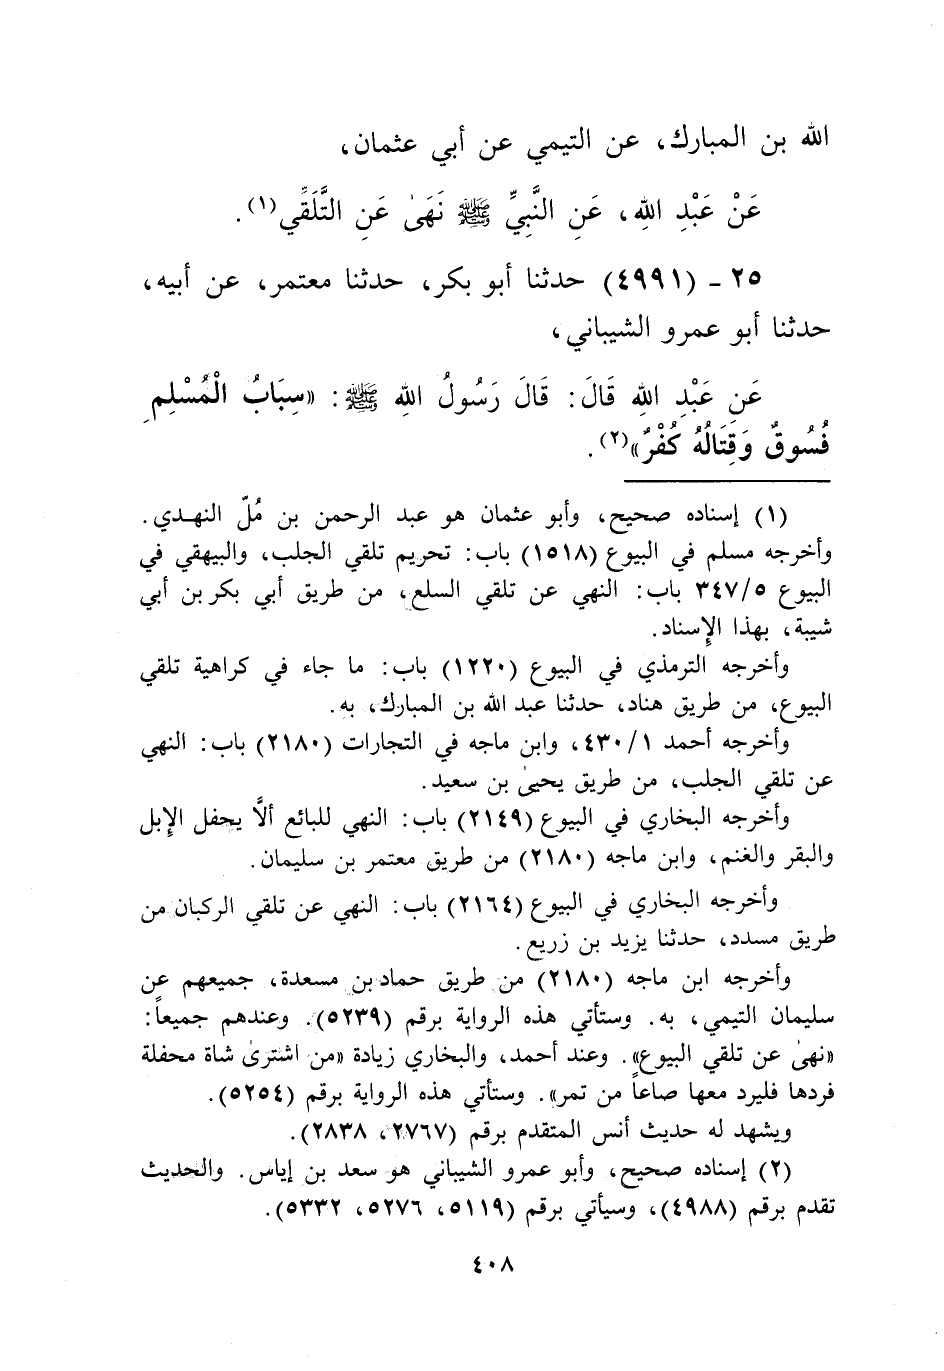 الله بن المبارك، عن التيمي عن أبي عثمان،
عَنْ عَبْدِ اللهِ، عَنِ النَّبِيِّ ﷺ نَهَىٰ عَنِ التَّلَقِّي(١).
٢٥ - (٤٩٩١) حدثنا أبو بكر، حدثنا معتمر، عن أبيه،
حدثنا أبو عمرو الشيباني،
عَنِ عَبْدِ اللهِ قَالَ: قَالَ رَسُولُ اللهِ ﷺ: «سِبَابُ الْمُسْلِمِ
فُسُوقٌ وَقِتَالُهُ كُفْرٌ»(٢).
(١) إسناده صحيح، وأبو عثمان هو عبد الرحمن بن مُلّ النهدي.
وأخرجه مسلم في البيوع (١٥١٨) باب: تحريم تلقي الجلب، والبيهقي في
البيوع ٣٤٧/٥ باب: النهي عن تلقي السلع، من طريق أبي بكر بن أبي
شيبة، بهذا الإسناد.
وأخرجه الترمذي في البيوع (١٢٢٠) باب: ما جاء في كراهية تلقي
البيوع، من طريق هناد، حدثنا عبد الله بن المبارك، به.
وأخرجه أحمد ٤٣٠/١، وابن ماجه في التجارات (٢١٨٠) باب: النهي
عن تلقي الجلب، من طريق يحيىٰ بن سعيد.
وأخرجه البخاري في البيوع (٢١٤٩) باب: النهي للبائع ألاَّ يحفل الإبل
والبقر والغنم، وابن ماجه (٢١٨٠) من طريق معتمر بن سليمان.
وأخرجه البخاري في البيوع (٢١٦٤) باب: النهي عن تلقي الركبان من
طريق مسدد، حدثنا يزيد بن زريع.
وأخرجه ابن ماجه (٢١٨٠) من طريق حماد بن مسعدة، جميعهم عن
سليمان التيمي، به. وستأتي هذه الرواية برقم (٥٢٣٩). وعندهم جميعاً:
«نهىٰ عن تلقي البيوع». وعند أحمد، والبخاري زيادة «من اشترىٰ شاة محفلة
فردها فليرد معها صاعاً من تمر». وستأتي هذه الرواية برقم (٥٢٥٤).
ويشهد له حديث أنس المتقدم برقم (٢٧٦٧، ٢٨٣٨).
(٢) إسناده صحيح، وأبو عمرو الشيباني هو سعد بن إياس. والحديث
تقدم برقم (٤٩٨٨)، وسيأتي برقم (٥١١٩، ٥٢٧٦، ٥٣٣٢).
٤٠٨